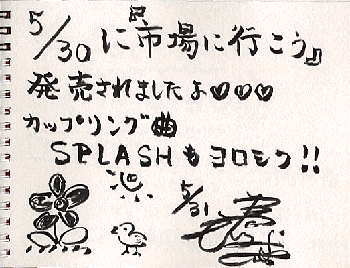 5/30に『市場に行こう』
発売されましたよ♡♡♡
カップリング曲
SPLASHもヨロシク!!
5/31